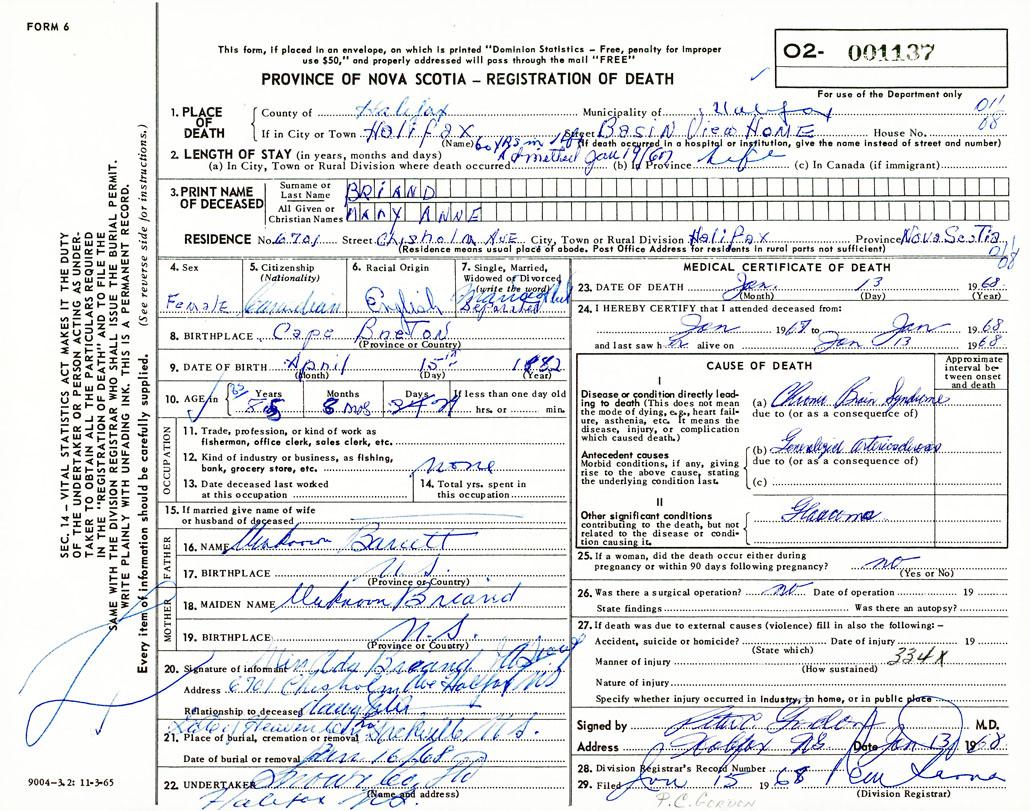 FORM 6
This form, if placed in an envelope, on which is printed "Dominion Statistics – Free, penalty for improper
use $50," and properly addressed will pass through the mail "FREE"
PROVINCE OF NOVA SCOTIA – REGISTRATION OF DEATH
O2- 001137
For use of the Department only
SEC. 14 – VITAL STATISTICS ACT MAKES IT THE DUTY
OF THE UNDERTAKER OR PERSON ACTING AS UNDER-
TAKER TO OBTAIN ALL THE PARTICULARS REQUIRED
IN THE "REGISTRATION OF DEATH" AND TO FILE THE
SAME WITH THE DIVISION REGISTRAR WHO SHALL ISSUE THE BURIAL PERMIT.
WRITE PLAINLY WITH UNFADING INK. THIS IS A PERMANENT RECORD.
Every item of information should be carefully supplied. (See reverse side for instructions.)
1. PLACE OF DEATH
County of Halifax Municipality of Halifax 011
If in City or Town HALIFAX Street BASIN VIEW HOME House No. 08
(Name) (If death occurred in a hospital or institution, give the name instead of street and number)
2. LENGTH OF STAY (in years, months and days) 60 YRS Admitted Jan 19/67
(a) In City, Town or Rural Division where death occurred (b) In Province Life (c) In Canada (if immigrant)
3. PRINT NAME OF DECEASED
Surname or Last Name BRIAND
All Given or Christian Names MARY ANNE
RESIDENCE No. 6701 Street Chisholm Ave City, Town or Rural Division Halifax Province Nova Scotia
(Residence means usual place of abode. Post Office Address for residents in rural parts not sufficient)
011 08
4. Sex Female
5. Citizenship (Nationality) Canadian
6. Racial Origin English
7. Single, Married, Widowed or Divorced (write the word) Separated
8. BIRTHPLACE Cape Breton
(Province or Country)
9. DATE OF BIRTH April 15th 1882
(Month) (Day) (Year)
10. AGE in Years 85 Months 8 mos Days 29 If less than one day old hrs. or min.
OCCUPATION
11. Trade, profession, or kind of work as fisherman, office clerk, sales clerk, etc.
12. Kind of industry or business, as fishing, bank, grocery store, etc. none
13. Date deceased last worked at this occupation
14. Total yrs. spent in this occupation
15. If married give name of wife or husband of deceased
FATHER
16. NAME Unknown Barrett
17. BIRTHPLACE
(Province or Country)
MOTHER
18. MAIDEN NAME Unknown Briand
19. BIRTHPLACE N.S.
(Province or Country)
20. Signature of informant Ada Briand
Address 6701 Chisholm Ave Halifax NS
Relationship to deceased daughter
21. Place of burial, cremation or removal Sackville N.S.
Date of burial or removal Jan 16/68
22. UNDERTAKER Snow
(Name and address)
Halifax N.S.
MEDICAL CERTIFICATE OF DEATH
23. DATE OF DEATH Jan. 13 1968
(Month) (Day) (Year)
24. I HEREBY CERTIFY that I attended deceased from:
Jan 1967 to Jan 1968
and last saw h alive on Jan 13 1968
CAUSE OF DEATH
Approximate interval between onset and death
I
Disease or condition directly leading to death (This does not mean the mode of dying, e.g., heart failure, asthenia, etc. It means the disease, injury, or complication which caused death.)
(a) Chronic Brain Syndrome
due to (or as a consequence of)
Antecedent causes
Morbid conditions, if any, giving rise to the above cause, stating the underlying condition last.
(b) Generalized Arteriosclerosis
due to (or as a consequence of)
(c)
II
Other significant conditions contributing to the death, but not related to the disease or condition causing it.
Glaucoma
25. If a woman, did the death occur either during
pregnancy or within 90 days following pregnancy? no
(Yes or No)
26. Was there a surgical operation? no Date of operation 19
State findings Was there an autopsy?
27. If death was due to external causes (violence) fill in also the following:–
Accident, suicide or homicide? Date of injury 19
(State which)
Manner of injury 334X
(How sustained)
Nature of injury
Specify whether injury occurred in Industry, in home, or in public place
Signed by Gordon M.D.
Address Halifax NS Date Jan 13 1968
28. Division Registrar's Record Number
29. Filed Jan 15 1968
(Division Registrar)
P.C. GORDON
9004-3.2: 11-3-65